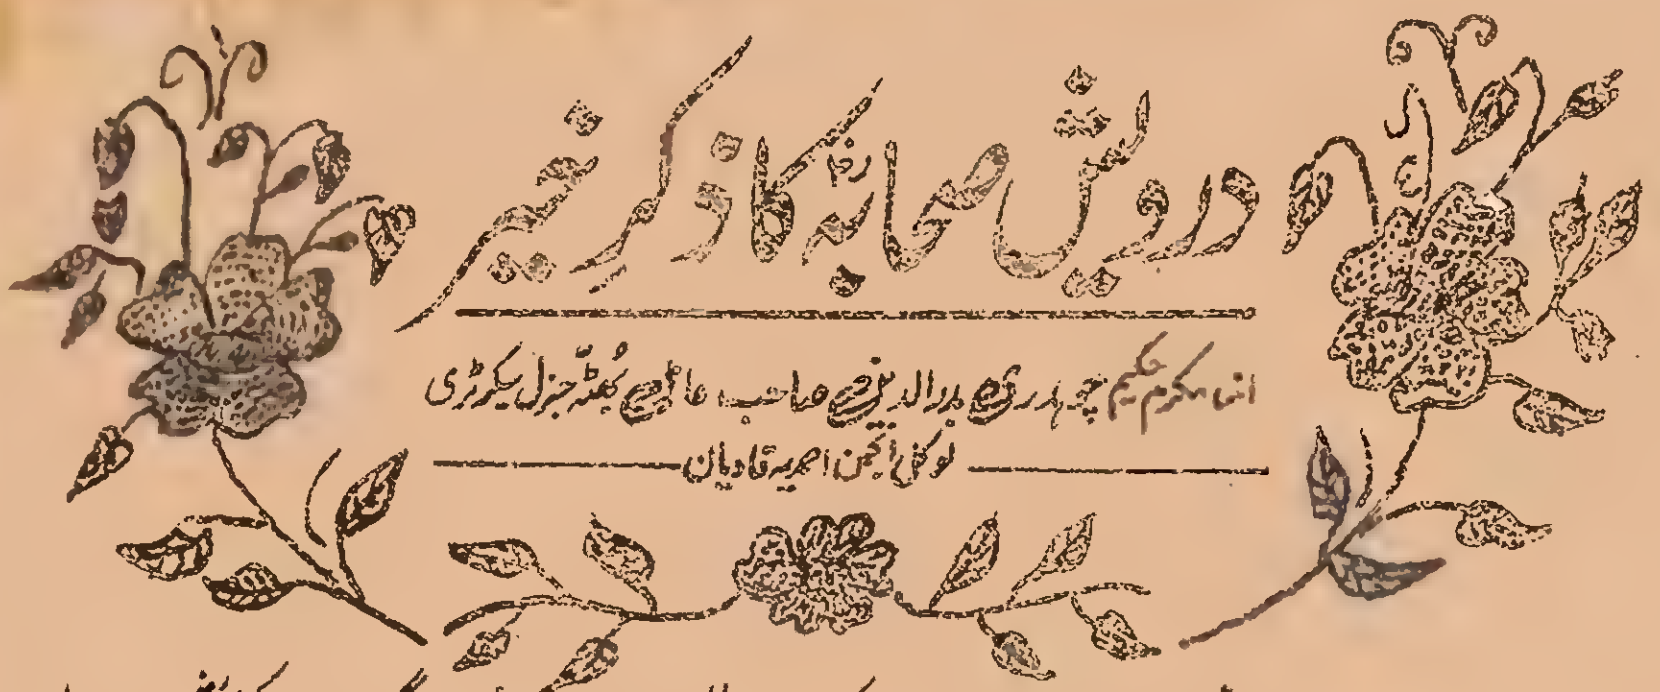 درویش صحابہؓ کا ذکرِ خیر
از مکرم حکیم چوہدری بدرالدین صاحب عامل بھٹّہ جنرل سیکرٹری
لوکل انجمن احمدیہ قادیان